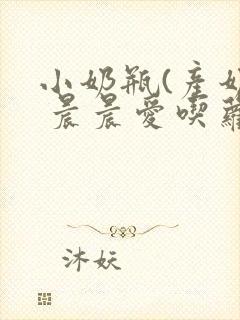 小奶瓶(產奶
晨晨愛喫蘿
沐妖